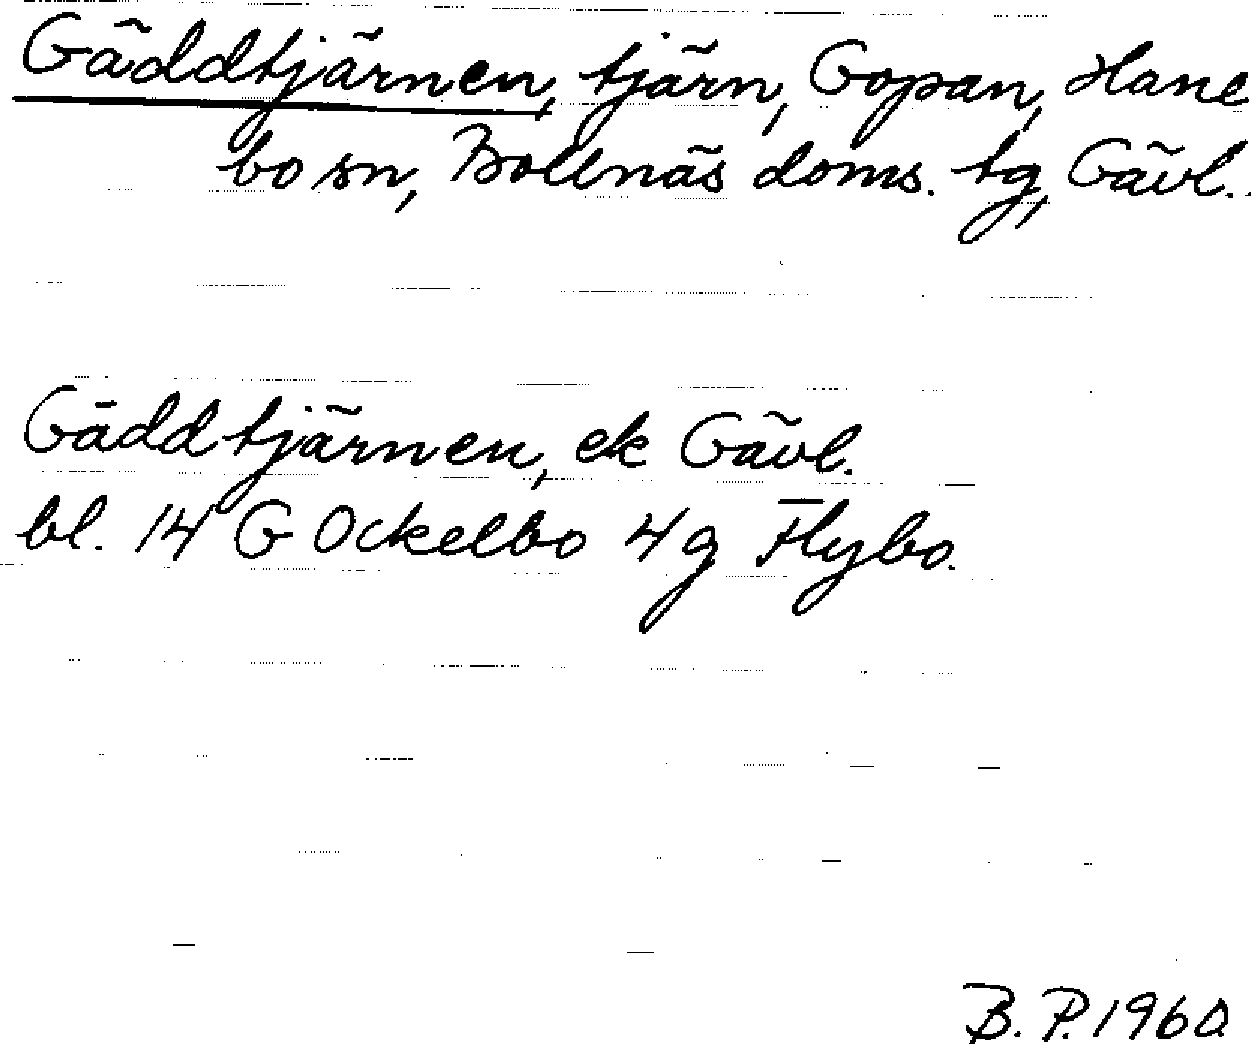 Gäddtjärnen, tjärn, Gopan, Hane
bo sn, Bollnäs doms. tg, Gävl.
Gäddtjärnen, ek Gävl.
bl. 14 G Ockelbo 4g Flybo.
B. P. 1960